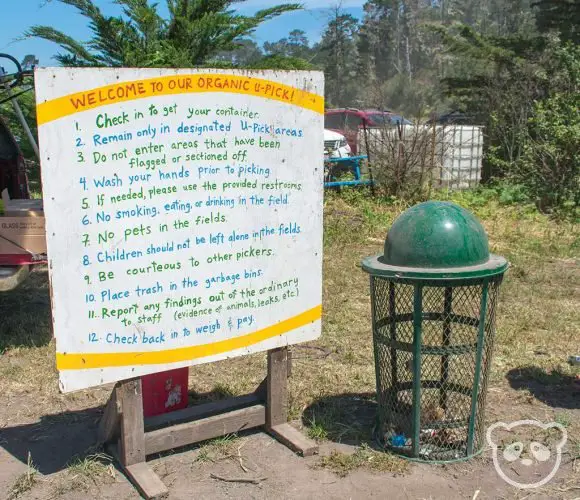 WELCOME TO OUR ORGANIC U-PICK!
1. Check in to get your container.
2. Remain only in designated U-Pick! areas
3. Do not enter areas that have been
flagged or sectioned off.
4. Wash your hands prior to picking
5. If needed, please use the provided restrooms.
6. No smoking, eating, or drinking in the field.
7. No pets in the fields.
8. Children should not be left alone in the fields.
9. Be courteous to other pickers.
10. Place trash in the garbage bins.
11. Report any findings out of the ordinary
to staff (evidence of animals, leaks, etc.)
12. Check back in to weigh & pay.
GLASS